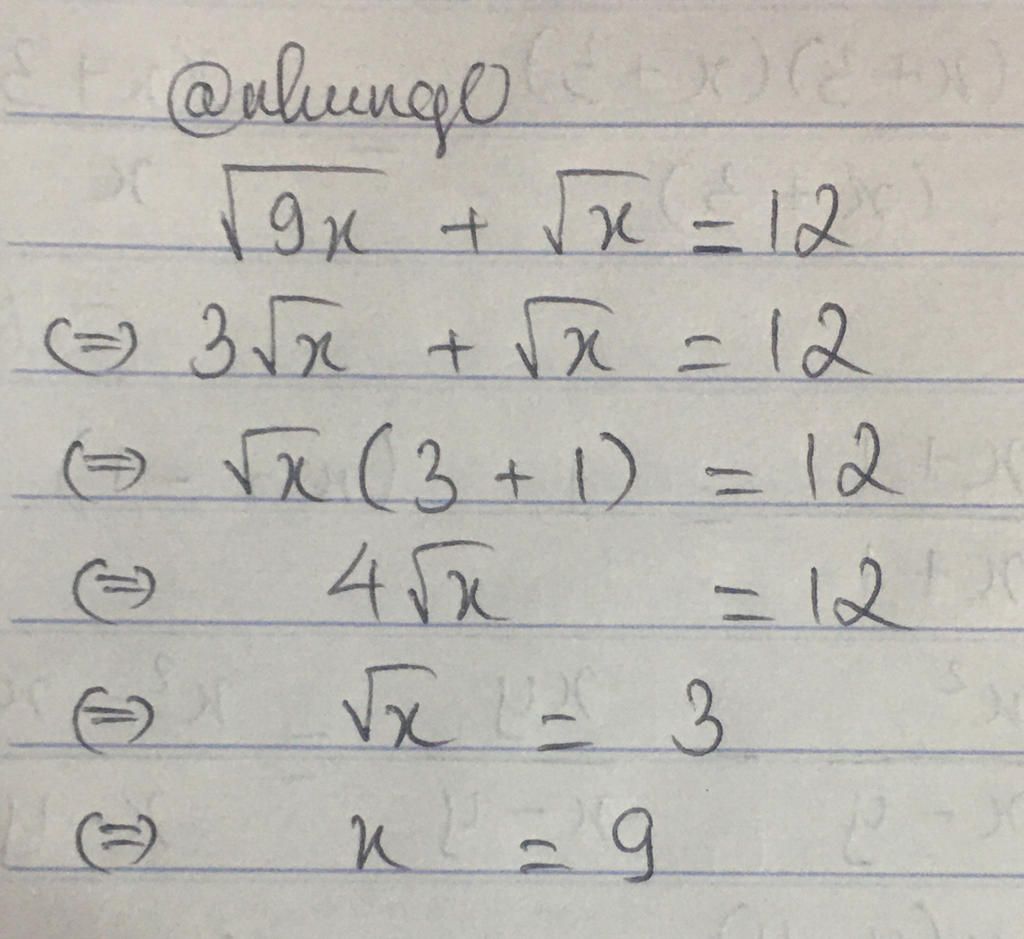 @nhung0
√9x + √x = 12
(=) 3√x + √x = 12
(=) √x (3 + 1) = 12
(=) 4√x = 12
(=) √x = 3
(=) x = 9